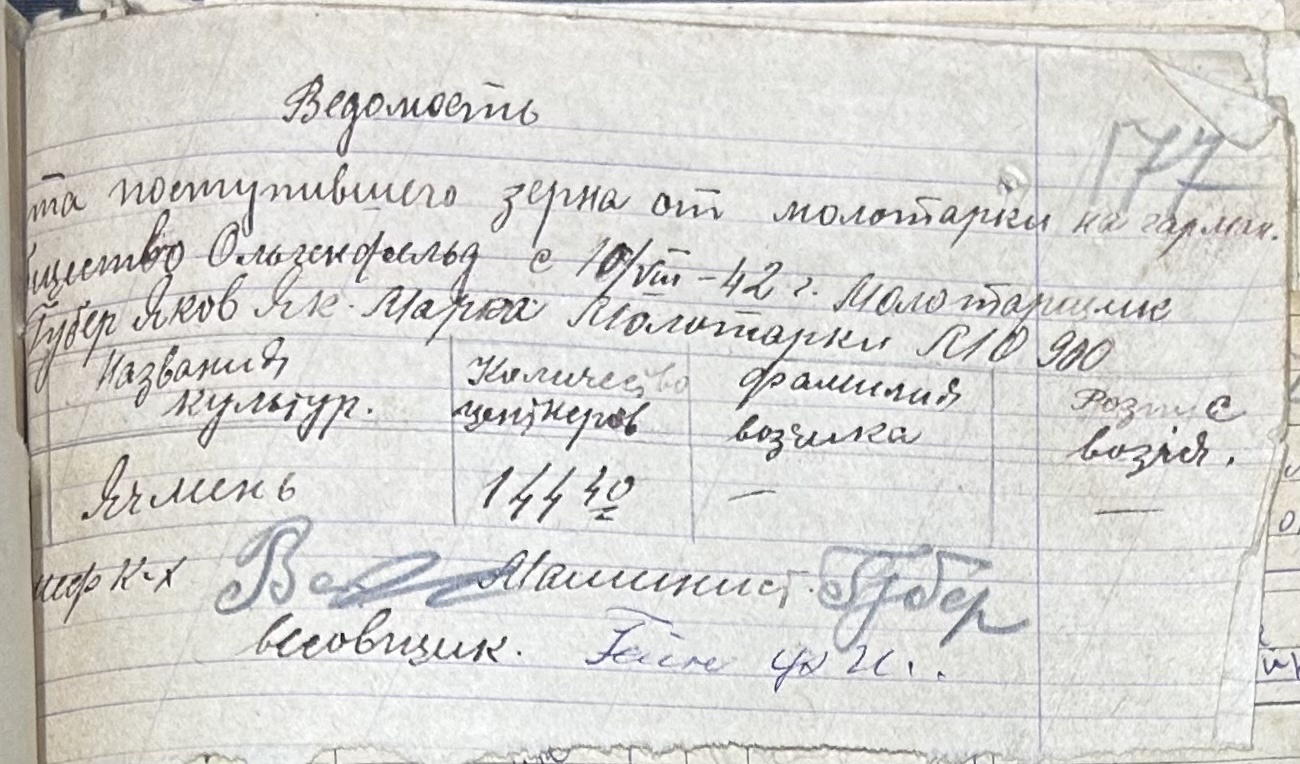 Ведомость
177
та поступившего зерна от молотарки на гарман.
щество Ользенфельд с 10/VIII-42 г. Молотарщик
Губер Яков Як. Марка Молотарки МЮ 900
Названия культур.
Количество центнеров
фамилия возчика
Розпис возчя.
Ячмень 144 40 — —
к-х Машинист. Губер
весовщик.